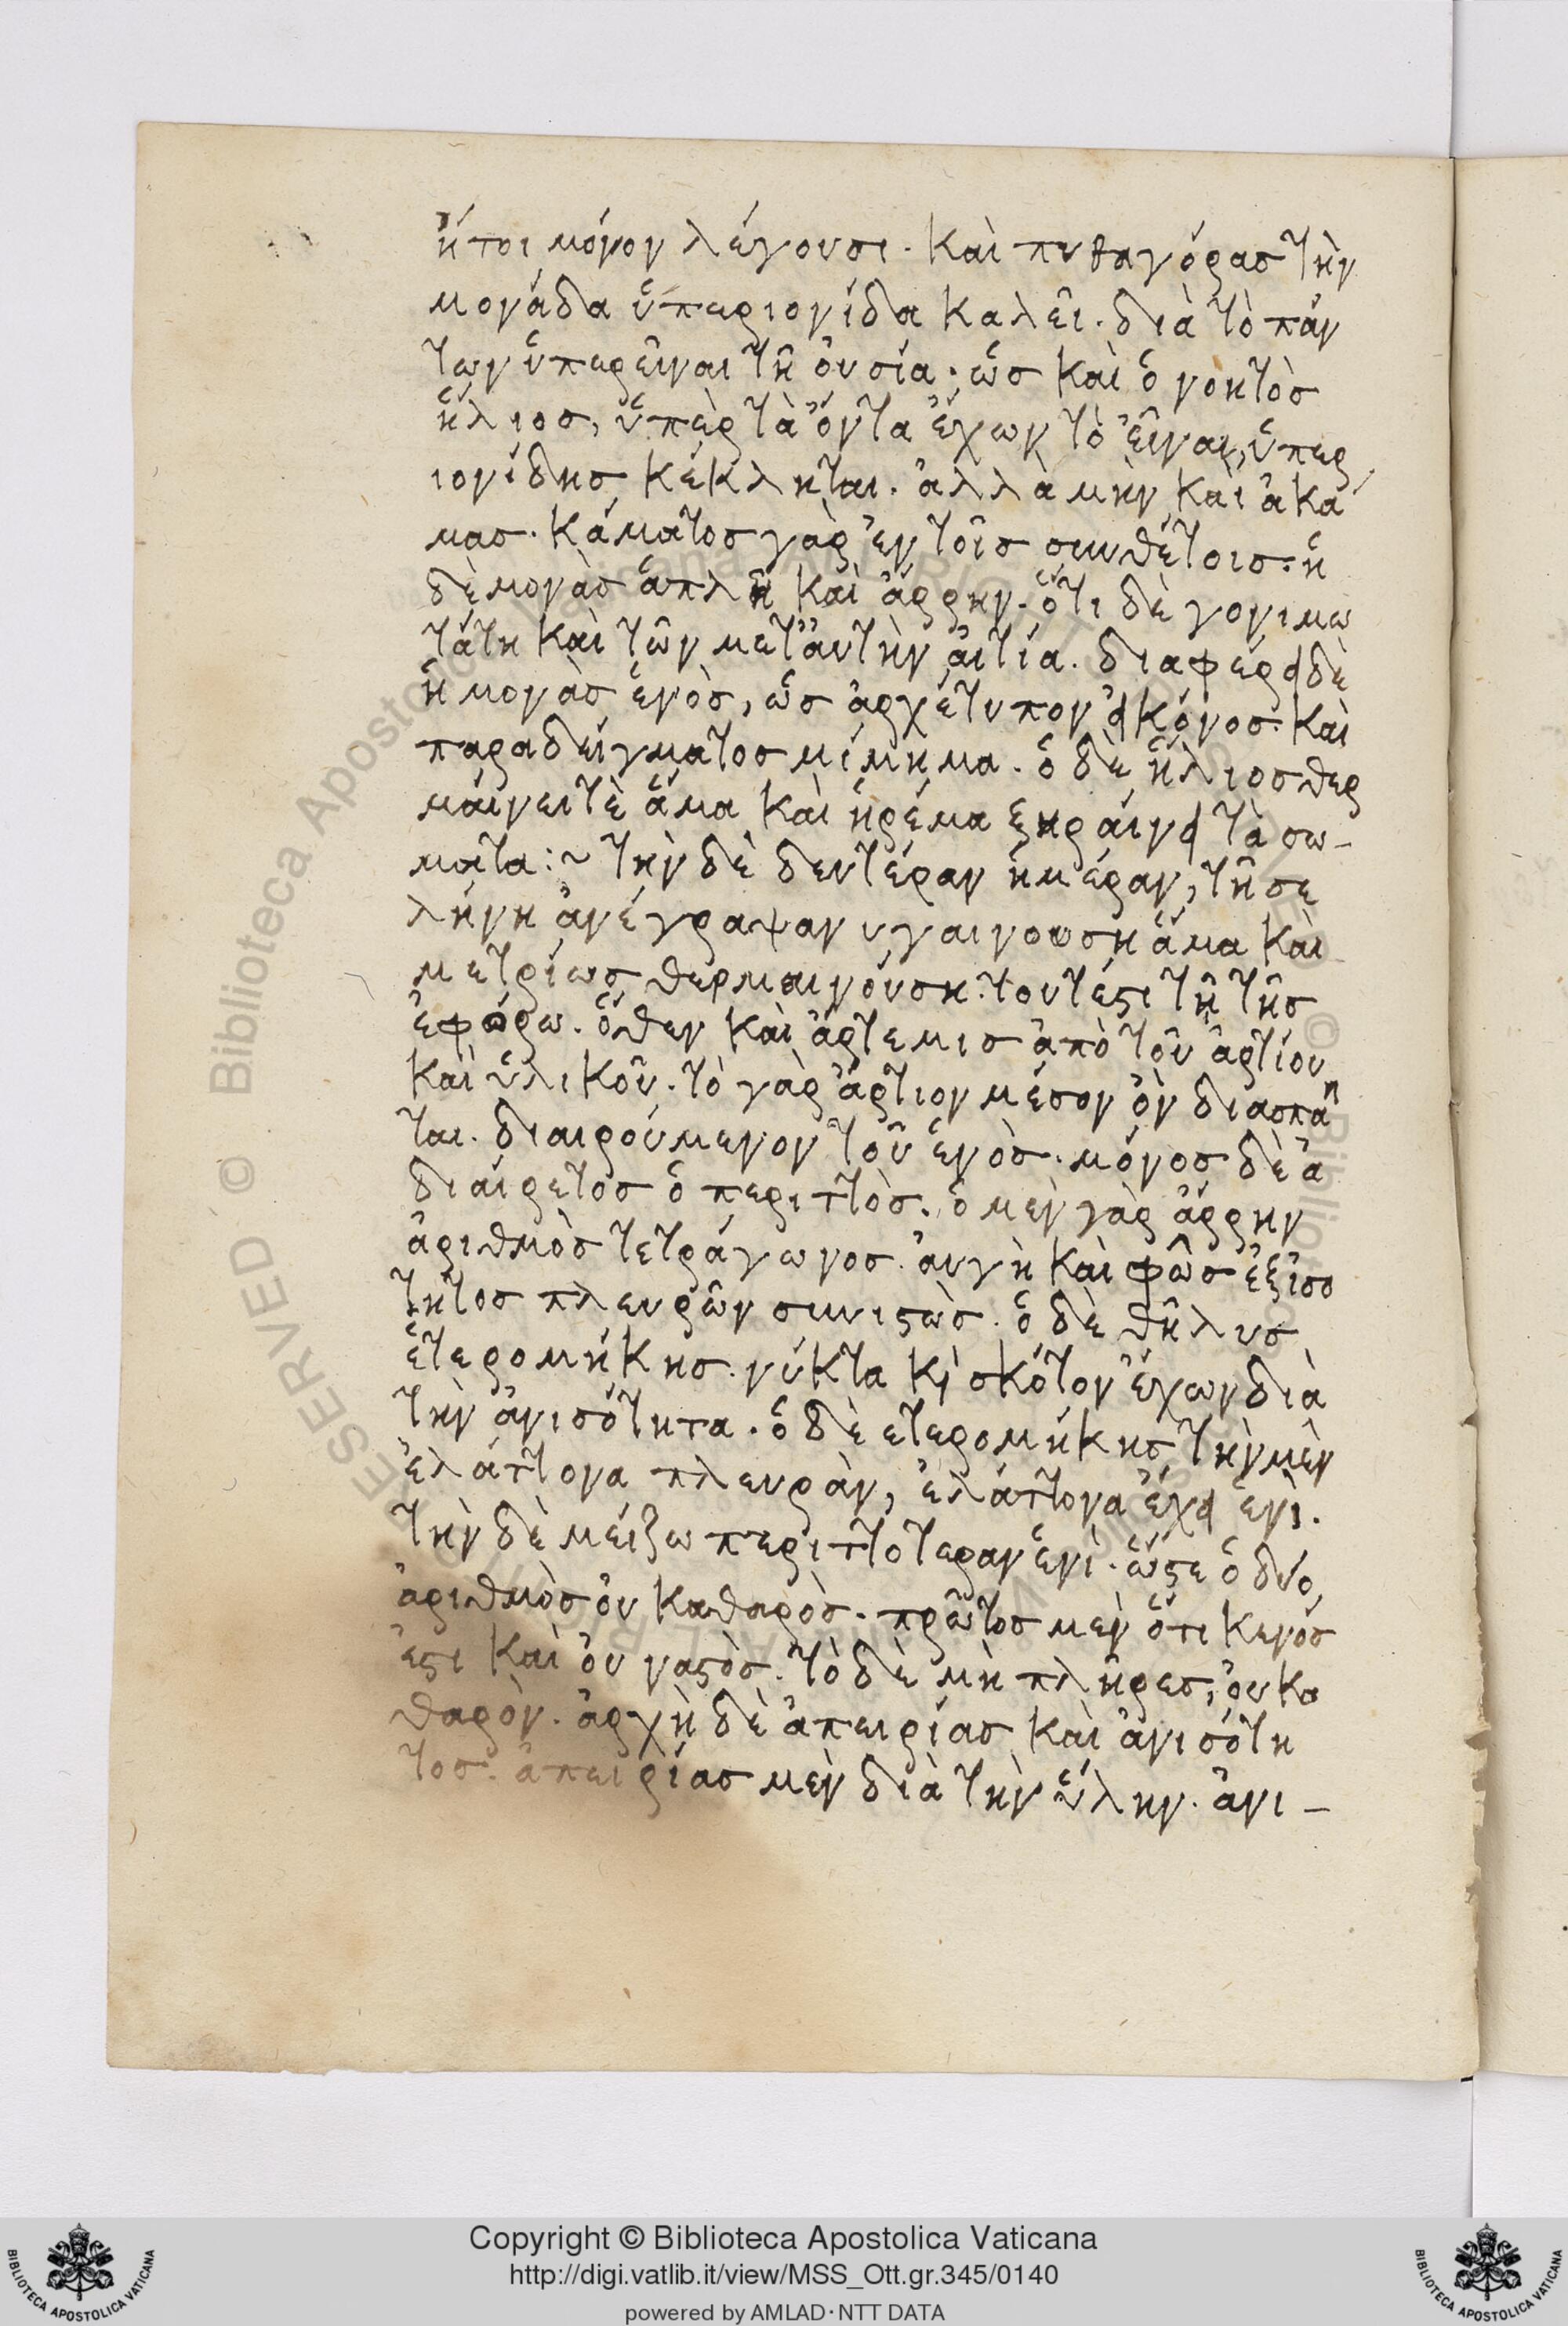 ἤτοι μόνον λέγουσι. καὶ πυθαγόρας τὴν
μονάδα ὑπεριονίδα καλεῖ. διὰ τὸ πάν
των ὑπερεῖναι τῆ οὐσία. ὡς καὶ ὁ νοητὸς
ἥλιος, ὑπὲρ τὰ ὄντα ἔχων τὸ εἶναι, ὑπερ
ιονίδης κέκληται. ἀλλὰ μὴν καὶ ἀκά
μας. κάματος γὰρ ἐν τοῖς συνθέτοις. ἡ
δὲ μονὰς ἁπλῆ καὶ ἄρρην. ὅτι δὲ γονιμω
τάτη καὶ τῶν μετ' αὐτὴν αἰτία. διαφέρει δὲ
ἡ μονὰς ἑνὸς, ὡς ἀρχέτυπον εἰκόνος. καὶ
παραδείγματος μίμημα. ὁ δὲ ἥλιος θερ
μαίνει τὲ ἅμα καὶ ἠρέμα ξηραίνει τὰ σω-
ματα:~ τὴν δὲ δευτέραν ἡμέραν, τῆ σε
λήνη ἀνέγραψαν υγαινούση ἅμα καὶ
μετρίως θερμαινούση. τουτέστι τῆ τῆς
ἐφόρω. ὅθεν καὶ ἄρτεμις ἀπὸ τοῦ ἀρτίου
καὶ ὑλικοῦ. τὸ γὰρ ἄρτιον μέσον ὂν διασπᾶ
ται. διαιρούμενον τοῦ ἑνὸς. μόνος δὲ ἀ
διαίρετος ὁ περιττὸς. ὁ μὲν γὰρ ἄρρην
ἀριθμὸς τετράγωνος. αὐγὴ καὶ φῶς ἐξ ἰσο
τητος πλευρῶν συνιστὼς. ὁ δὲ θῆλυς
ἑτερομήκης. νύκτα κὶ σκότον ἔχων διὰ
τὴν ἀνισότητα. ὁ δὲ ετερομήκης τὴν μὲν
ἐλάττονα πλευρὰν, ἐλάττονα ἔχει ἑνὶ.
τὴν δὲ μείζω περιττοτεραν ἑνὶ. ὥστε ὁ δύο
ἀριθμὸς οὐ καθαρὸς. πρῶτος μὲν ὅτι κενός
ἐστι καὶ οὐ ναστὸς. τὸ δὲ μὴ πλῆρες, οὐ κα
θαρὸν. ἀρχὴ δὲ ἀπειρίας καὶ ἀνισότη
τος. ἀπειρίας μὲν διὰ τὴν ὕλην. ἀνι-
Copyright © Biblioteca Apostolica Vaticana
http://digi.vatlib.it/view/MSS_Ott.gr.345/0140
powered by AMLAD·NTT DATA